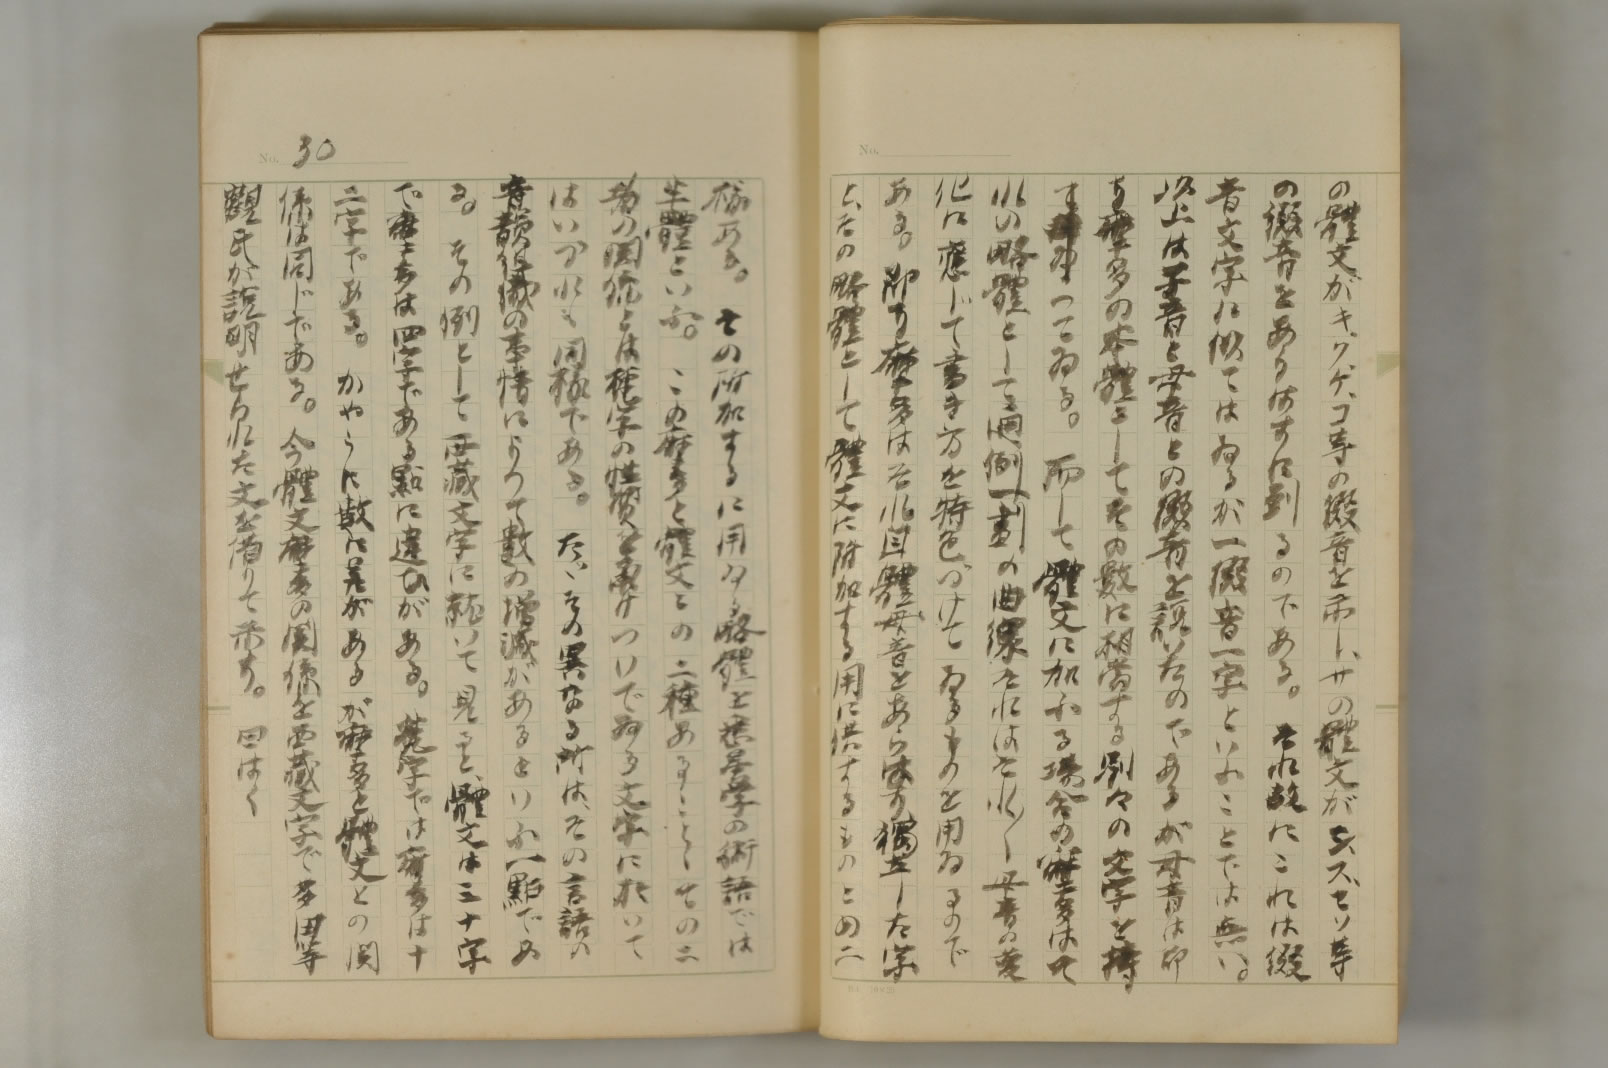 No.
の體文がキ、クゲ、コ等の綴音を示し、サの體文がシ、ス、セソ等
の綴音をあらはすに到るのである。それ故にこれは綴
音文字に似てはゐるが一綴音一字といふことでは無い。
以上は子音と母音との綴音を説いたのであるが母音は即
ち摩多の本體としてその數に相當する別々の文字を持
つてゐる。而して體文に加ふる場合の摩多はそ
れの略體として通例一劃の曲線それはそれ〳〵母音の變
化に應じて書き方を特色づけてゐるものを用ゐるので
ある。即ち摩多はそれ自體母音をあらはす獨立した字
とその略體として體文に附加する用に供するものとの二
No. 30
樣ある。その所加するに用ゐる略體を悉曇學の術語では
半體といふ。この摩多と體文との二種あること、その二
者の關係とは梵字の性質を承けついでゐる文字に於いて
はいづれも同樣である。たゞその異なる所は、その言語の
音韻組織の事情によつて數の增減があるといふ一點であ
る。その例として西藏文字に就いて見ると、體文は三十字
で摩多は四字である點に違ひがある。梵字では摩多は十
二字である。かやうに數に差があるが摩多と體文との關
係は同じである。今體文摩多の關係を西藏文字で多田等
觀氏が説明せられた文を借りて示す。曰はく